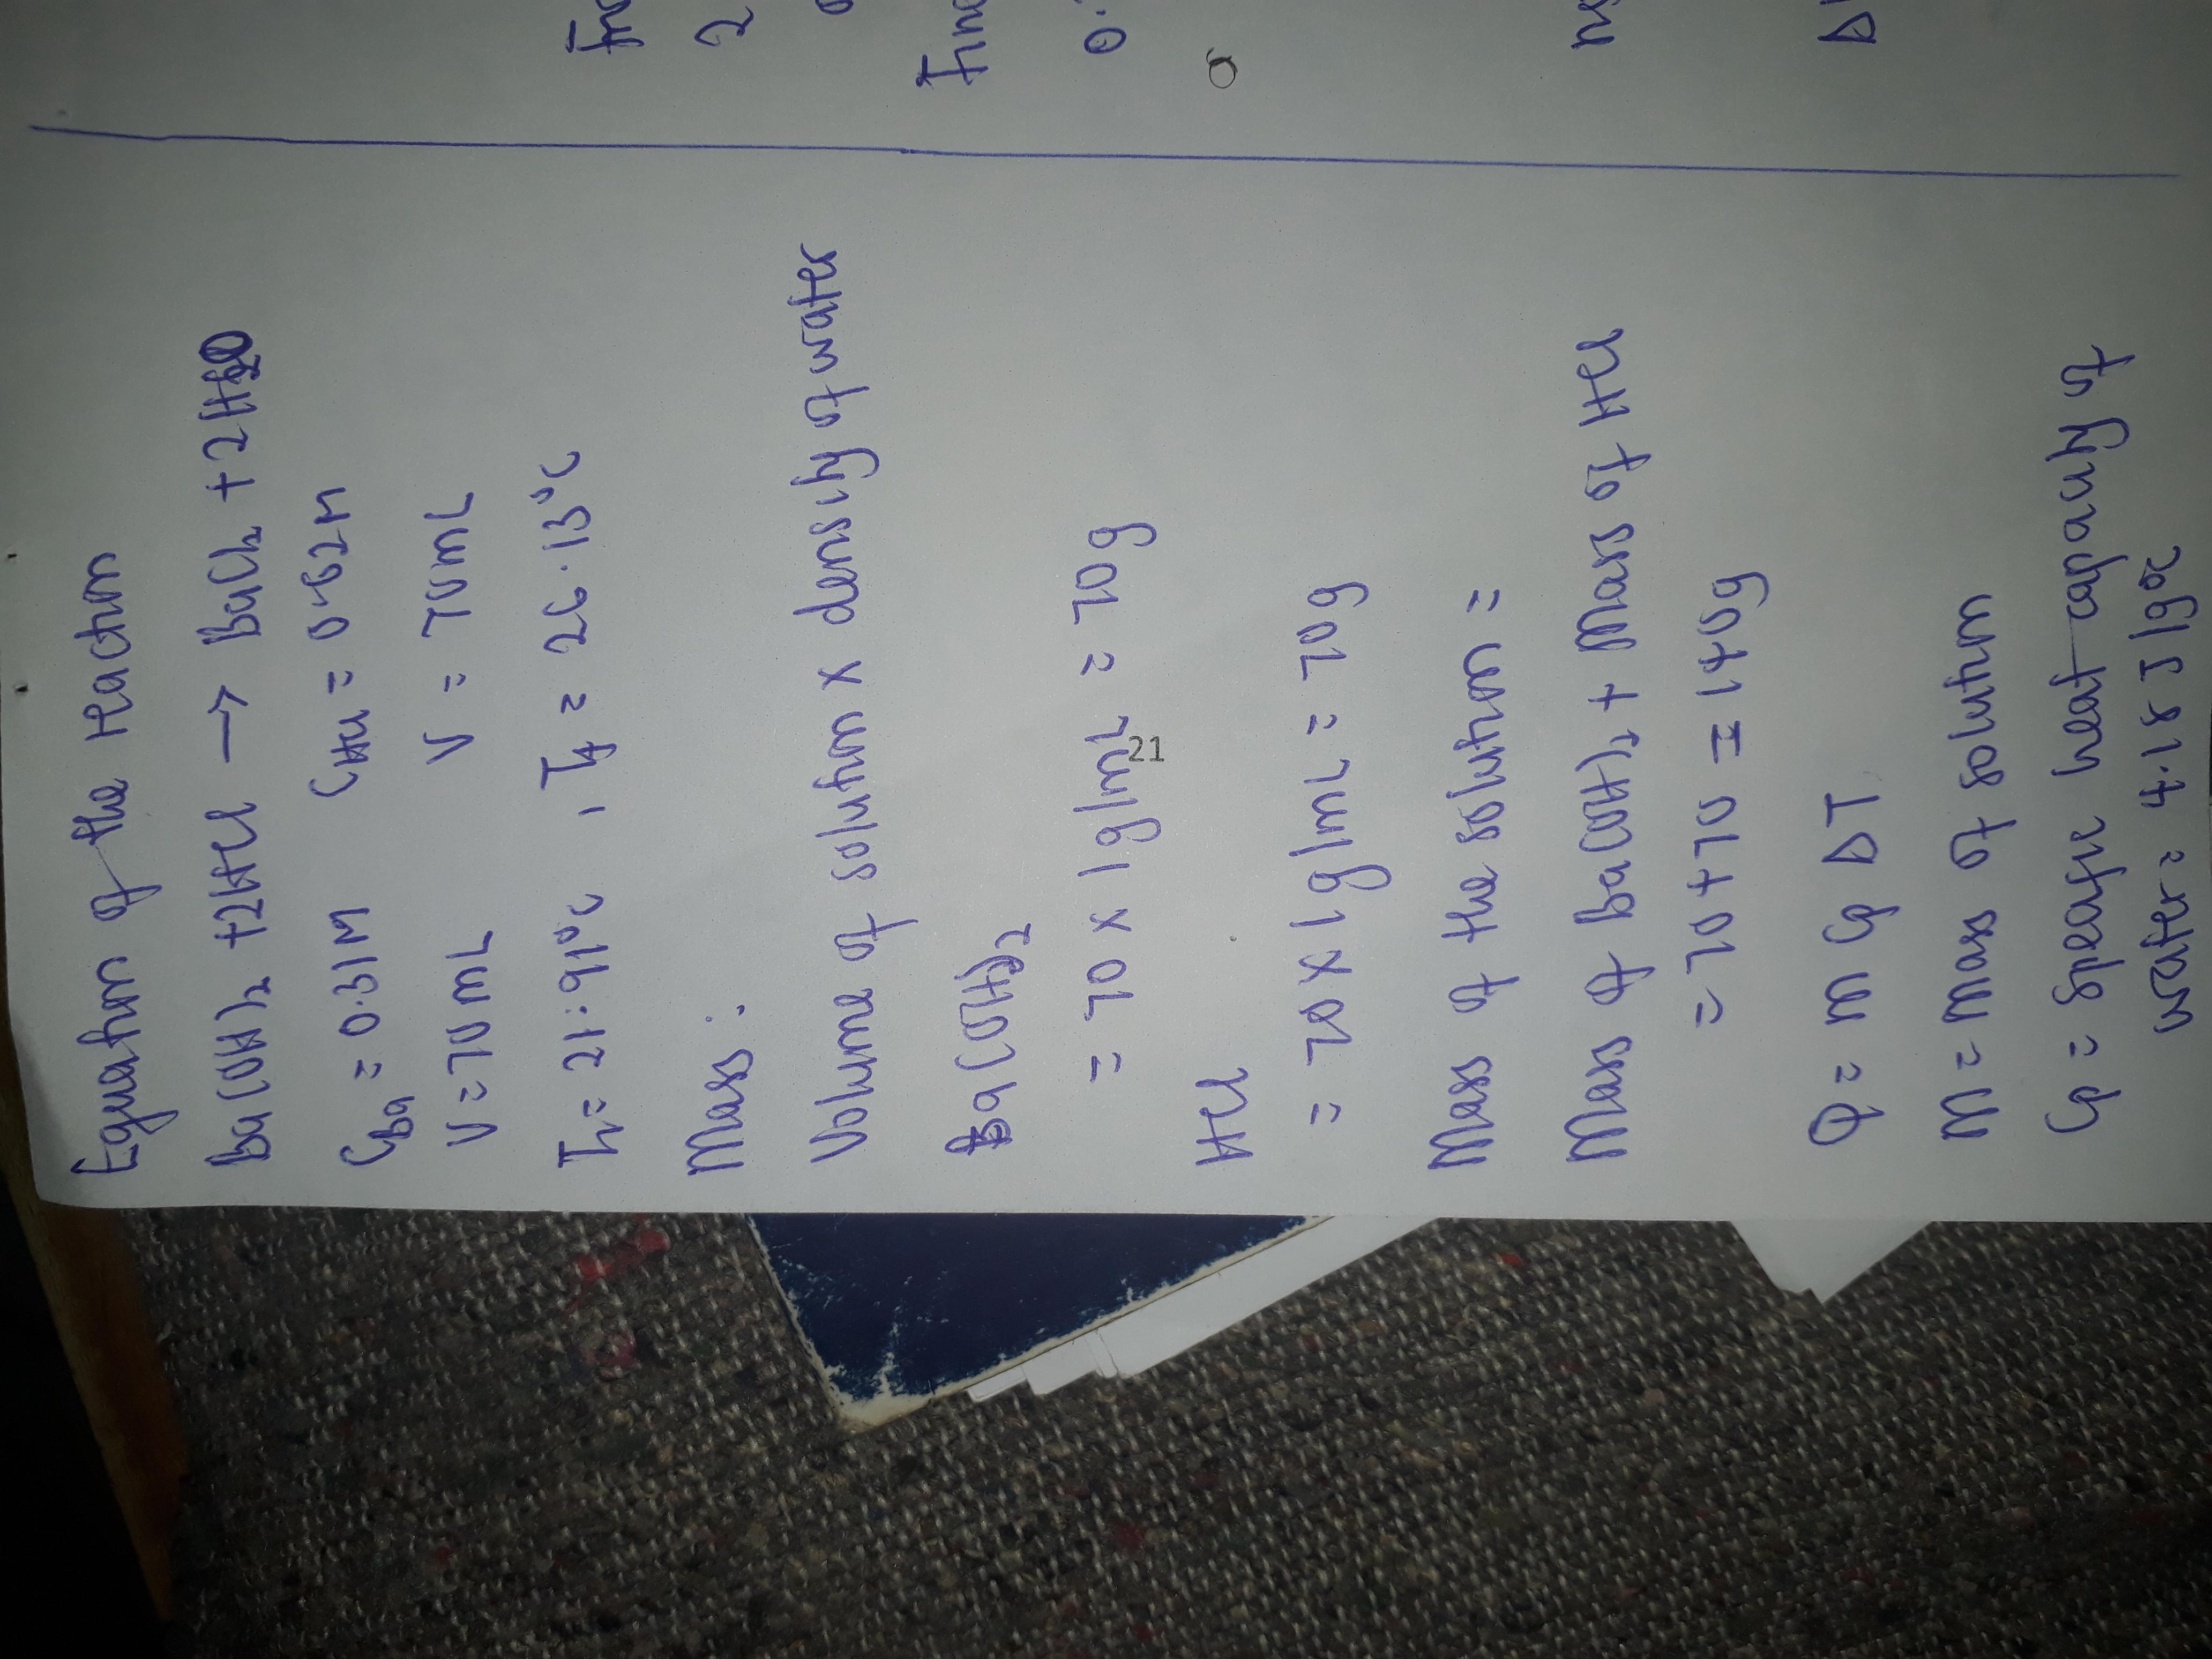 Equation of the reaction
Ba(OH)₂ + 2HCl → BaCl₂ + 2H₂O
CBa = 0.31M CHCl = 0.62M
V = 70mL V = 70mL
Ti = 21.91°C , Tf = 26.13°C
Mass :
Volume of solution x density of water
Ba(OH)₂
= 70 x 1g/mL = 70g
21
HCl
= 70 x 1g/mL = 70g
Mass of the solution =
Mass of Ba(OH)₂ + Mass of HCl
= 70 + 70 = 140g
Q = m Cp ΔT
m = mass of solution
Cp = specific heat capacity of
water = 4.18 J/g°C
2
0.